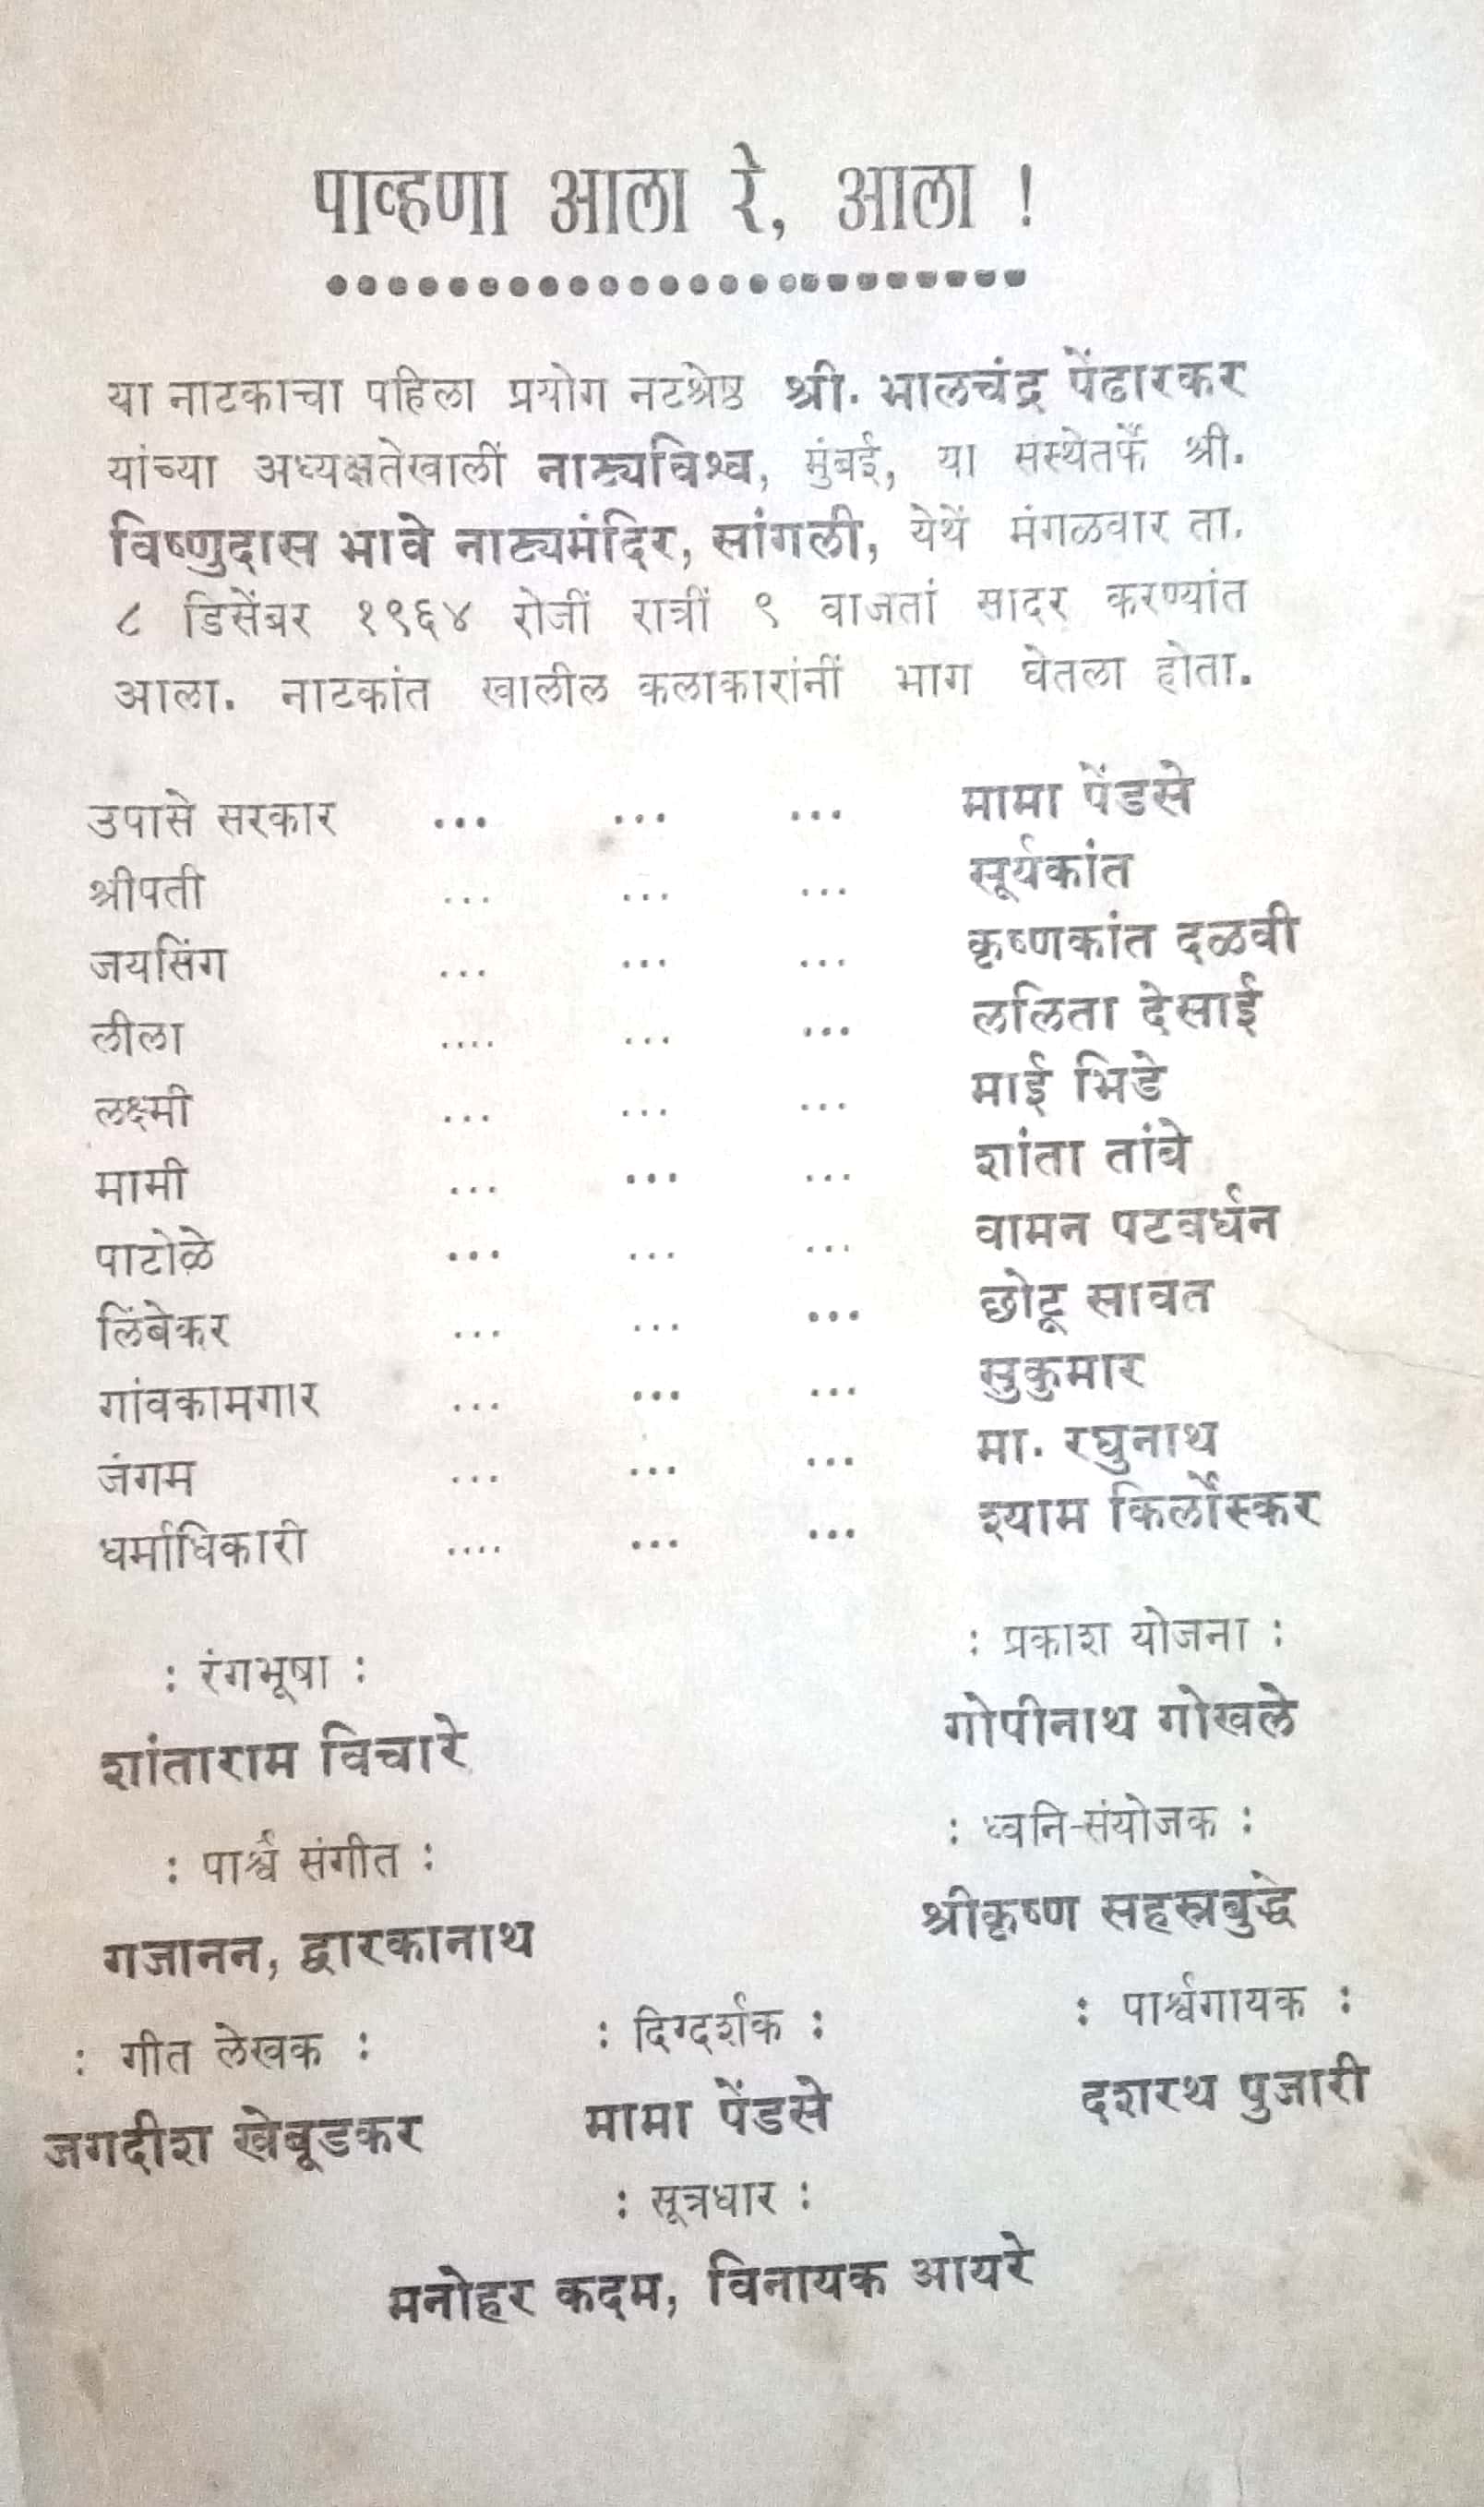 पाव्हणा आला रे, आला !
या नाटकाचा पहिला प्रयोग नटश्रेष्ठ श्री. भालचंद्र पेंढारकर
यांच्या अध्यक्षतेखालीं नाट्यविश्व, मुंबई, या संस्थेतर्फे श्री.
विष्णुदास भावे नाट्यमंदिर, सांगली, येथें मंगळवार ता.
८ डिसेंबर १९६४ रोजीं रात्रीं ९ वाजतां सादर करण्यांत
आला. नाटकांत खालील कलाकारांनीं भाग घेतला होता.
उपासे सरकार ... ... ... मामा पेंडसे
श्रीपती ... ... ... सूर्यकांत
जयसिंग ... ... ... कृष्णकांत दळवी
लीला .... ... ... ललिता देसाई
लक्ष्मी ... ... ... माई भिडे
मामी ... ... ... शांता तांबे
पाटोळे ... ... ... वामन पटवर्धन
लिंबेकर ... ... ... छोटू सावत
गांवकामगार ... ... ... सुकुमार
जंगम ... ... ... मा. रघुनाथ
धर्माधिकारी .... ... ... श्याम किर्लोस्कर
: रंगभूषा : : प्रकाश योजना :
शांताराम विचारे गोपीनाथ गोखले
: पार्श्व संगीत : : ध्वनि-संयोजक :
गजानन, द्वारकानाथ श्रीकृष्ण सहस्रबुद्धे
: गीत लेखक : : दिग्दर्शक : : पार्श्वगायक :
जगदीश खेबूडकर मामा पेंडसे दशरथ पुजारी
: सूत्रधार :
मनोहर कदम, विनायक आयरे